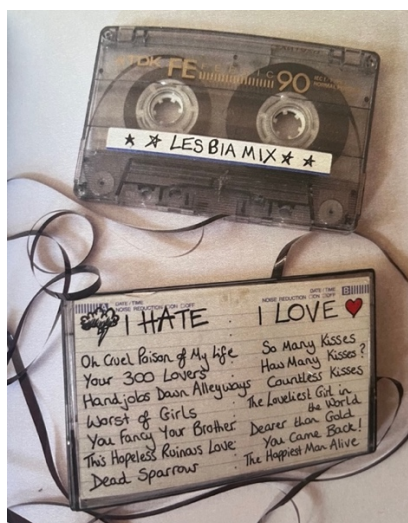 TDK FE FERRIC 90
★ ☆ LESBIA MIX ☆ ★
A DATE/TIME
NOISE REDUCTION □ON □OFF
I HATE
Oh Cruel Poison of My Life
Your 300 Lovers
Handjobs Down Alleyways
Worst of Girls
You Fancy Your Brother
This Hopeless Ruinous Love
Dead Sparrow
DATE/TIME B
NOISE REDUCTION □ON □OFF
I LOVE
So Many Kisses
How Many Kisses?
Countless Kisses
The Loveliest Girl in
the World
Dearer than Gold
You Came Back!
The Happiest Man Alive